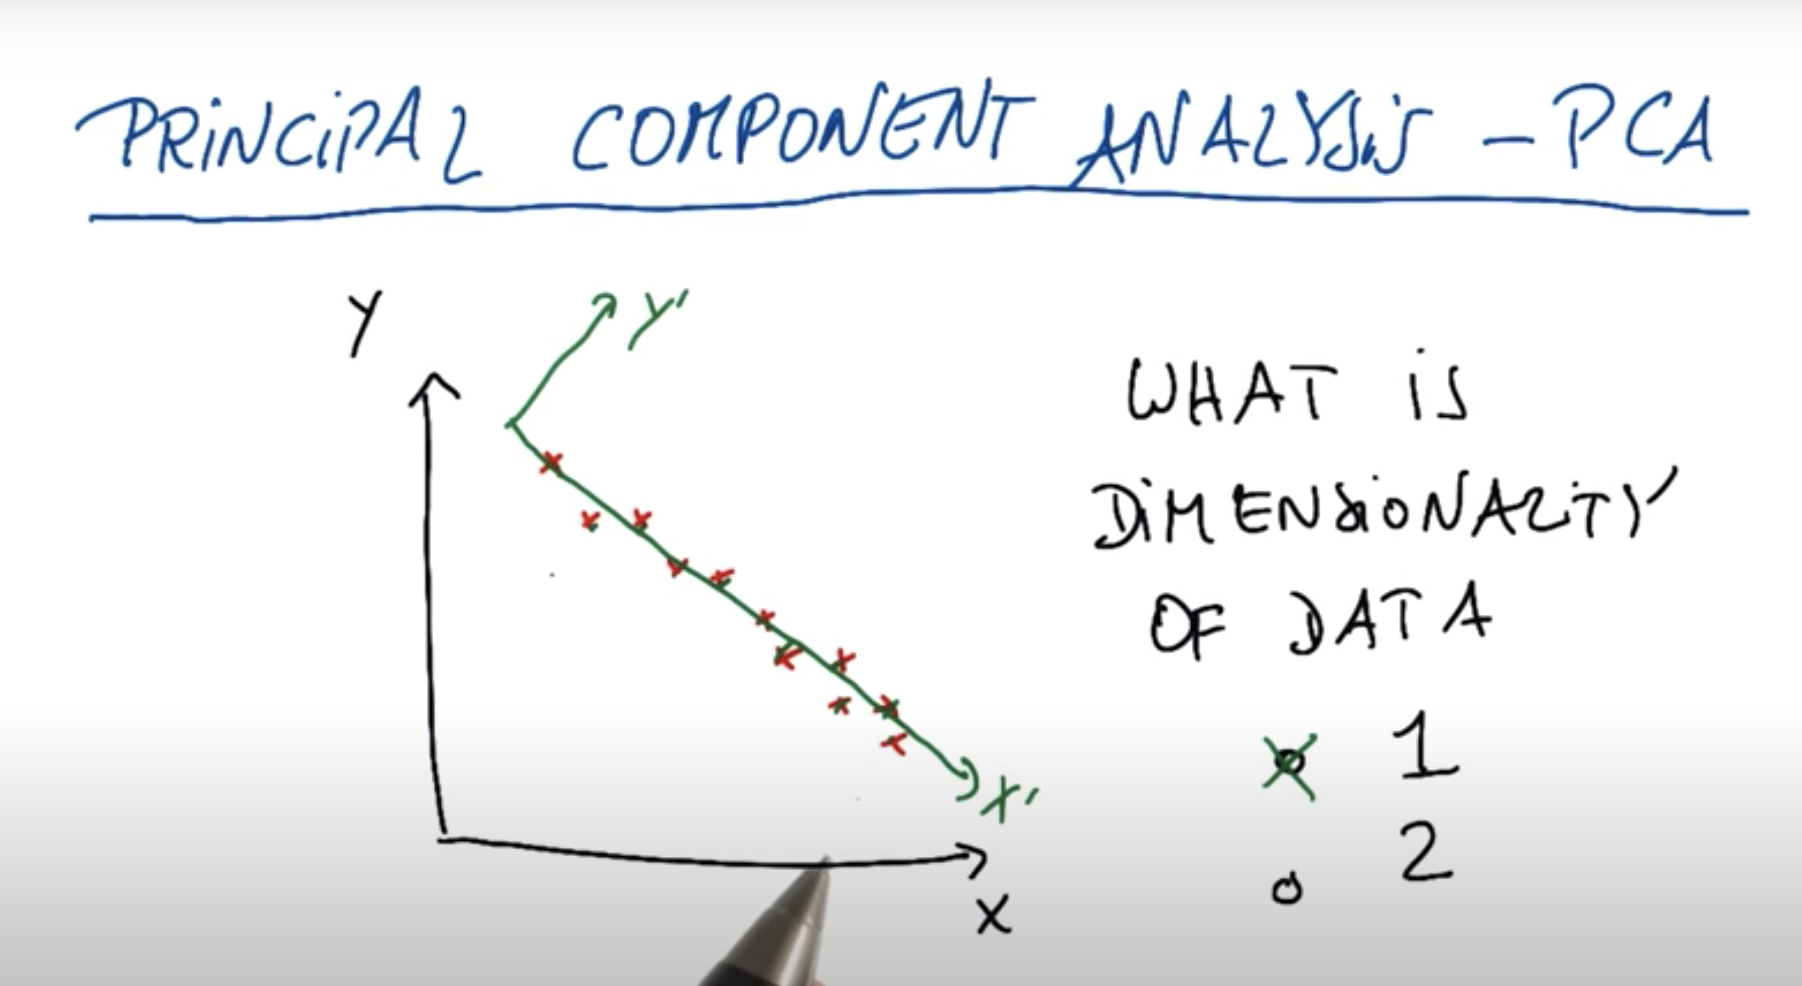 PRINCIPAL COMPONENT ANALYSIS - PCA
Y
Y'
WHAT IS
DIMENSIONALITY
OF DATA
1
X'
2
X